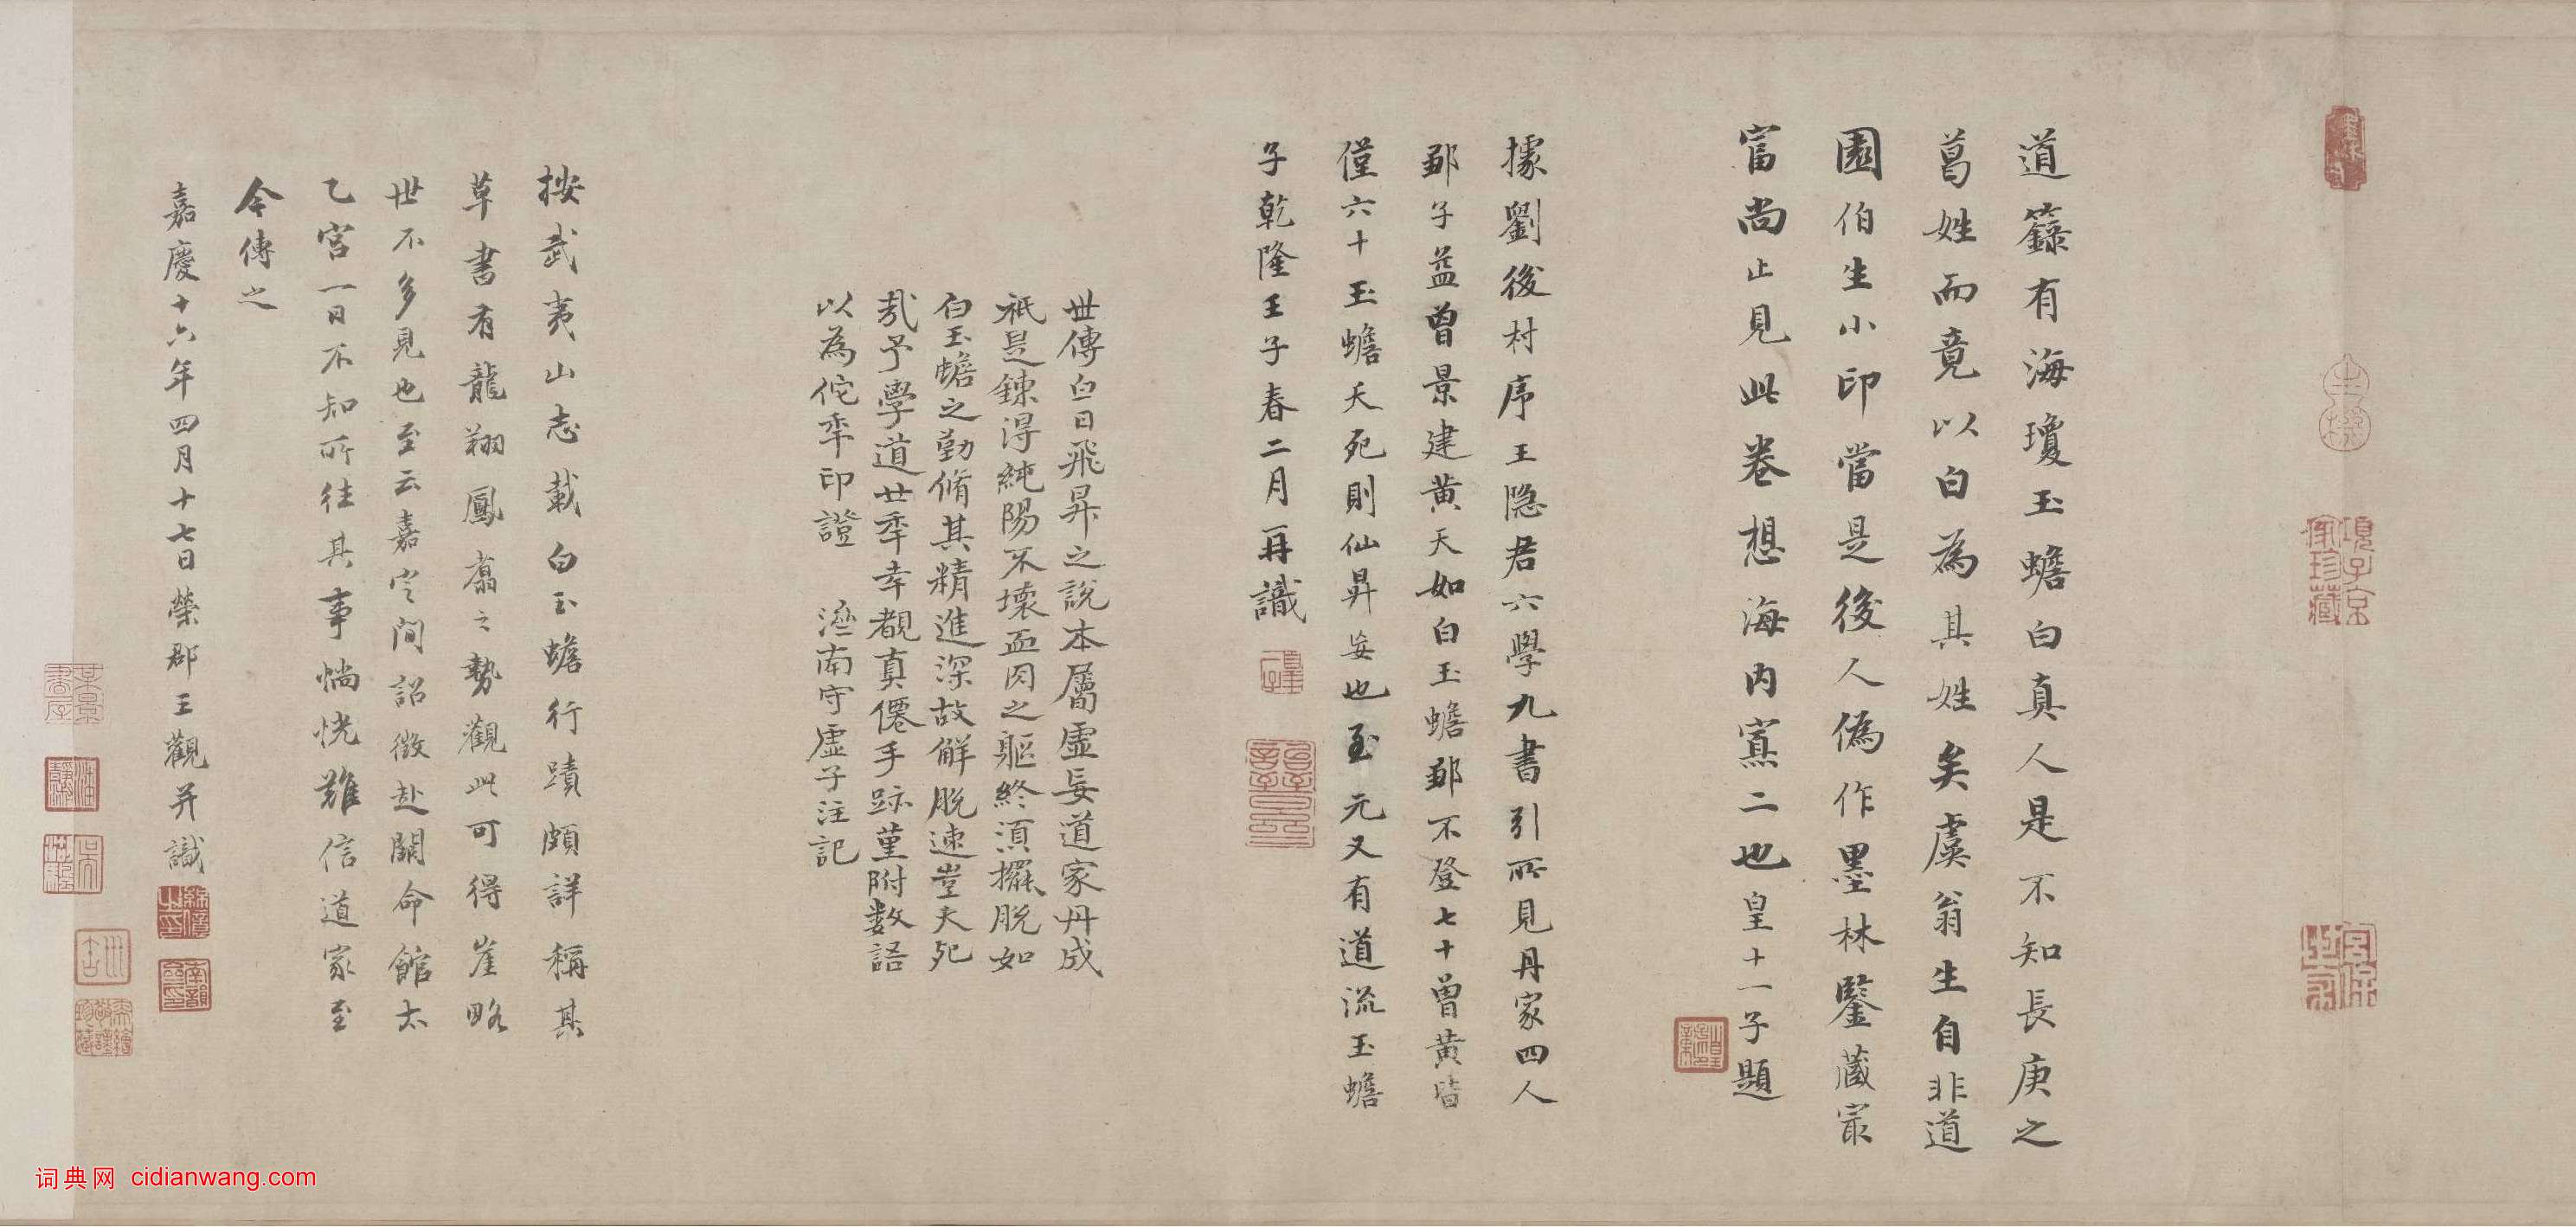 道籙有海瓊玉蟾白真人是不知長庚之
葛姓而竟以白為其姓矣虞翁生自非道
園伯生小印當是後人偽作墨林鑒藏寂
富尚止見此卷想海內寡二也皇十一子題
據劉後村序王隱君六學九書引所見丹家四人
鄒子益曾景建黃天如白玉蟾鄒不登七十曾黃皆
僅六十玉蟾夭死則仙昇妄也至元又有道流玉蟾
子乾隆壬子春二月再識
世傳白日飛昇之說本屬虛妄道家丹成
祇是鍊得純陽不壞血肉之軀終須擺脫如
白玉蟾之勤脩其精進深故解脫速豈夭死
哉予學道廿年幸覩真僊手跡菫附数語
以為佗年印證 瀛南守虛子注記
按武夷山志載白玉蟾行蹟頗詳稱其
草書有龍翔鳳翥之勢觀此可得崖略
世不多見也至云嘉定間詔徵赴闕命館太
乙宮一日不知所往其事惝恍難信道家至
今傳之
嘉慶十六年四月十七日榮郡王觀并識
項子京
家珍藏
宮保
世家
词典网 cidianwang.com